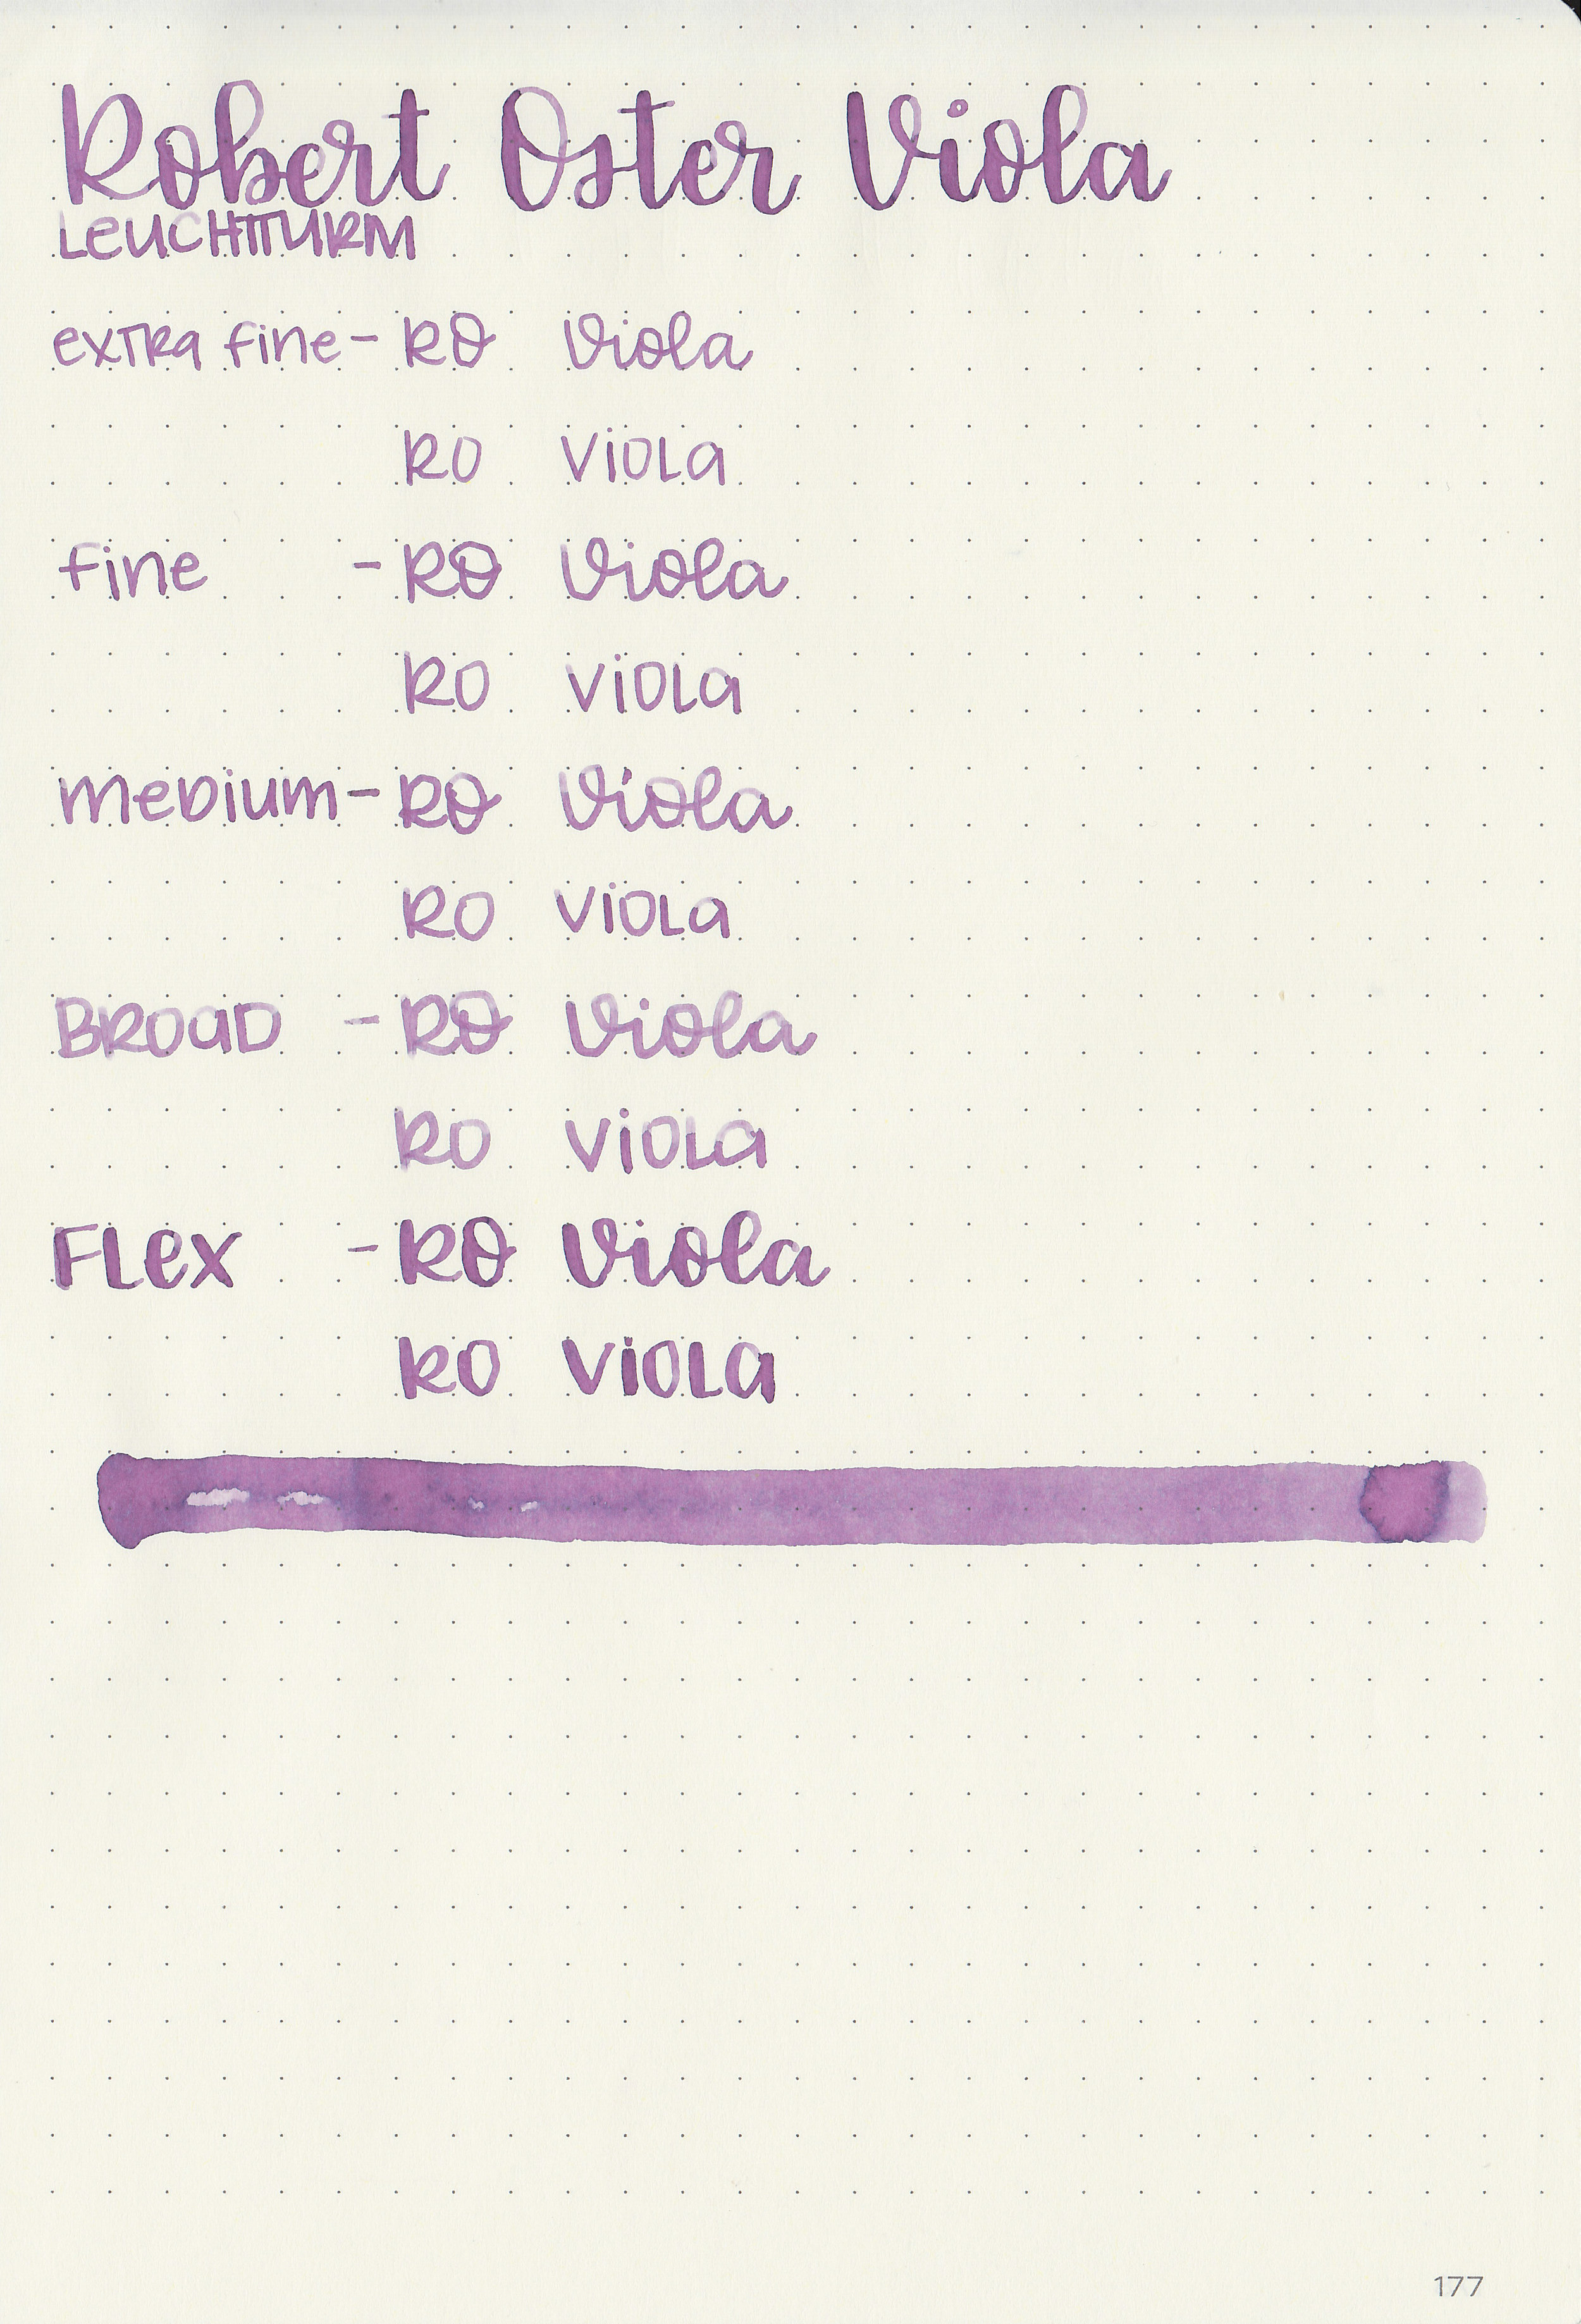 Robert Oster Viola
LEUCHTTURM
extra fine - RO Viola
RO Viola
fine - RO Viola
RO Viola
medium - RO Viola
RO Viola
BROAD - RO Viola
RO Viola
FLex - RO Viola
RO Viola
177